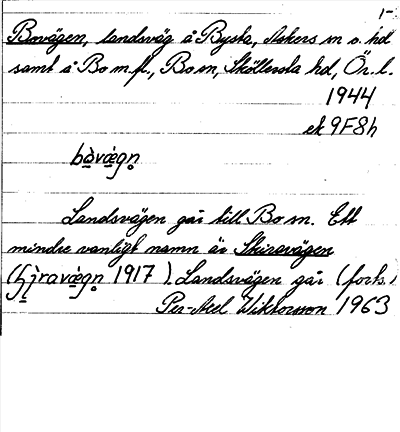 1-
Bovägen, landsväg å Bysta, Askers sn o. hd
samt å Bo m.fl., Bo sn, Sköllersta hd, Ör. l.
1944
ek 9F8h
Landsvägen går till Bo sn. Ett
mindre vanligt namn är Skiravägen
1917). Landsvägen går (forts.)
Per-Axel Wiktorsson 1963